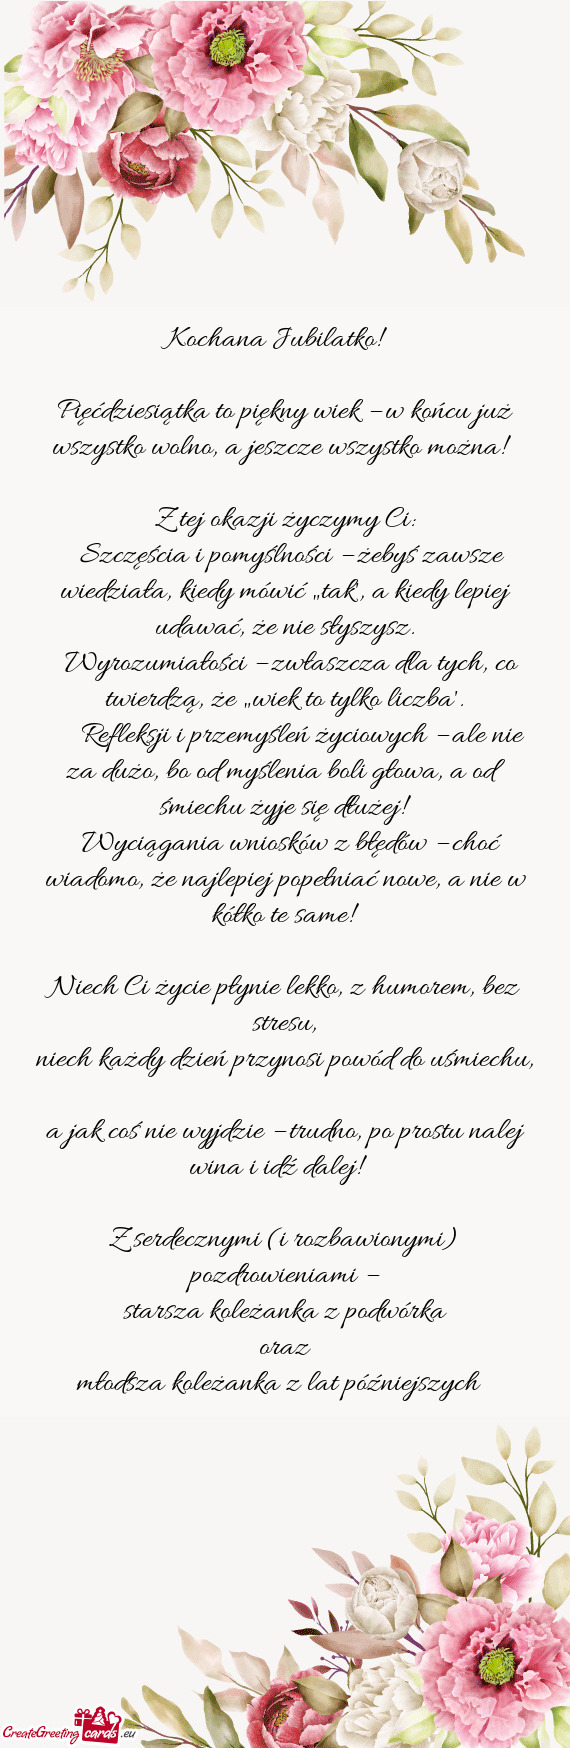 Kochana Jubilatko!
Pięćdziesiątka to piękny wiek – w końcu już
wszystko wolno, a jeszcze wszystko można!
Z tej okazji życzymy Ci:
Szczęścia i pomyślności – żebyś zawsze
wiedziała, kiedy mówić „tak", a kiedy lepiej
udawać, że nie słyszysz.
Wyrozumiałości – zwłaszcza dla tych, co
twierdzą, że „wiek to tylko liczba".
Refleksji i przemyśleń życiowych – ale nie
za dużo, bo od myślenia boli głowa, a od
śmiechu żyje się dłużej!
Wyciągania wniosków z błędów – choć
wiadomo, że najlepiej popełniać nowe, a nie w
kółko te same!
Niech Ci życie płynie lekko, z humorem, bez
stresu,
niech każdy dzień przynosi powód do uśmiechu,
a jak coś nie wyjdzie – trudno, po prostu nalej
wina i idź dalej!
Z serdecznymi (i rozbawionymi)
pozdrowieniami –
starsza koleżanka z podwórka
oraz
młodsza koleżanka z lat późniejszych
CreateGreeting cards .eu